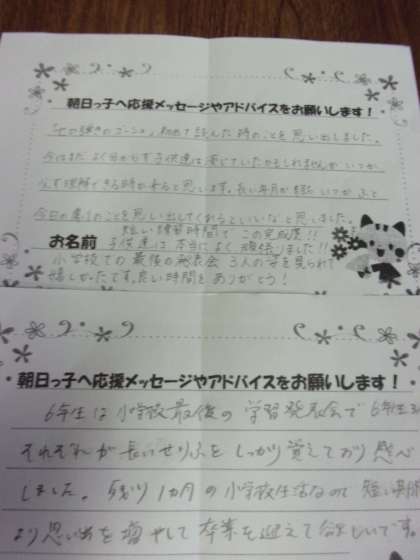 朝日っ子へ応援メッセージやアドバイスをお願いします！
初めて読んだ時のことを思い出しました。
今はまだよく分からず子供達は演じていたかもしれませんがいつか
必ず理解できる時が来ると思います。長い年月が経いつかふと
今日の劇のことを思い出してくれるといいなと思いました。
短い練習時間でこの完成度!!
お名前 子供達は本当によく頑張りました!!
小学校での最後の発表会 3人の姿を見られて
嬉しかったです。良い時間をありがとう！
朝日っ子へ応援メッセージやアドバイスをお願いします！
6年生は小学校最後の学習発表会で6年生
それぞれが長いせりふをしっかり覚えており感心
しました。残り1カ月の小学校生活なので短い
より思い出を増やして卒業を迎えて欲しいです。